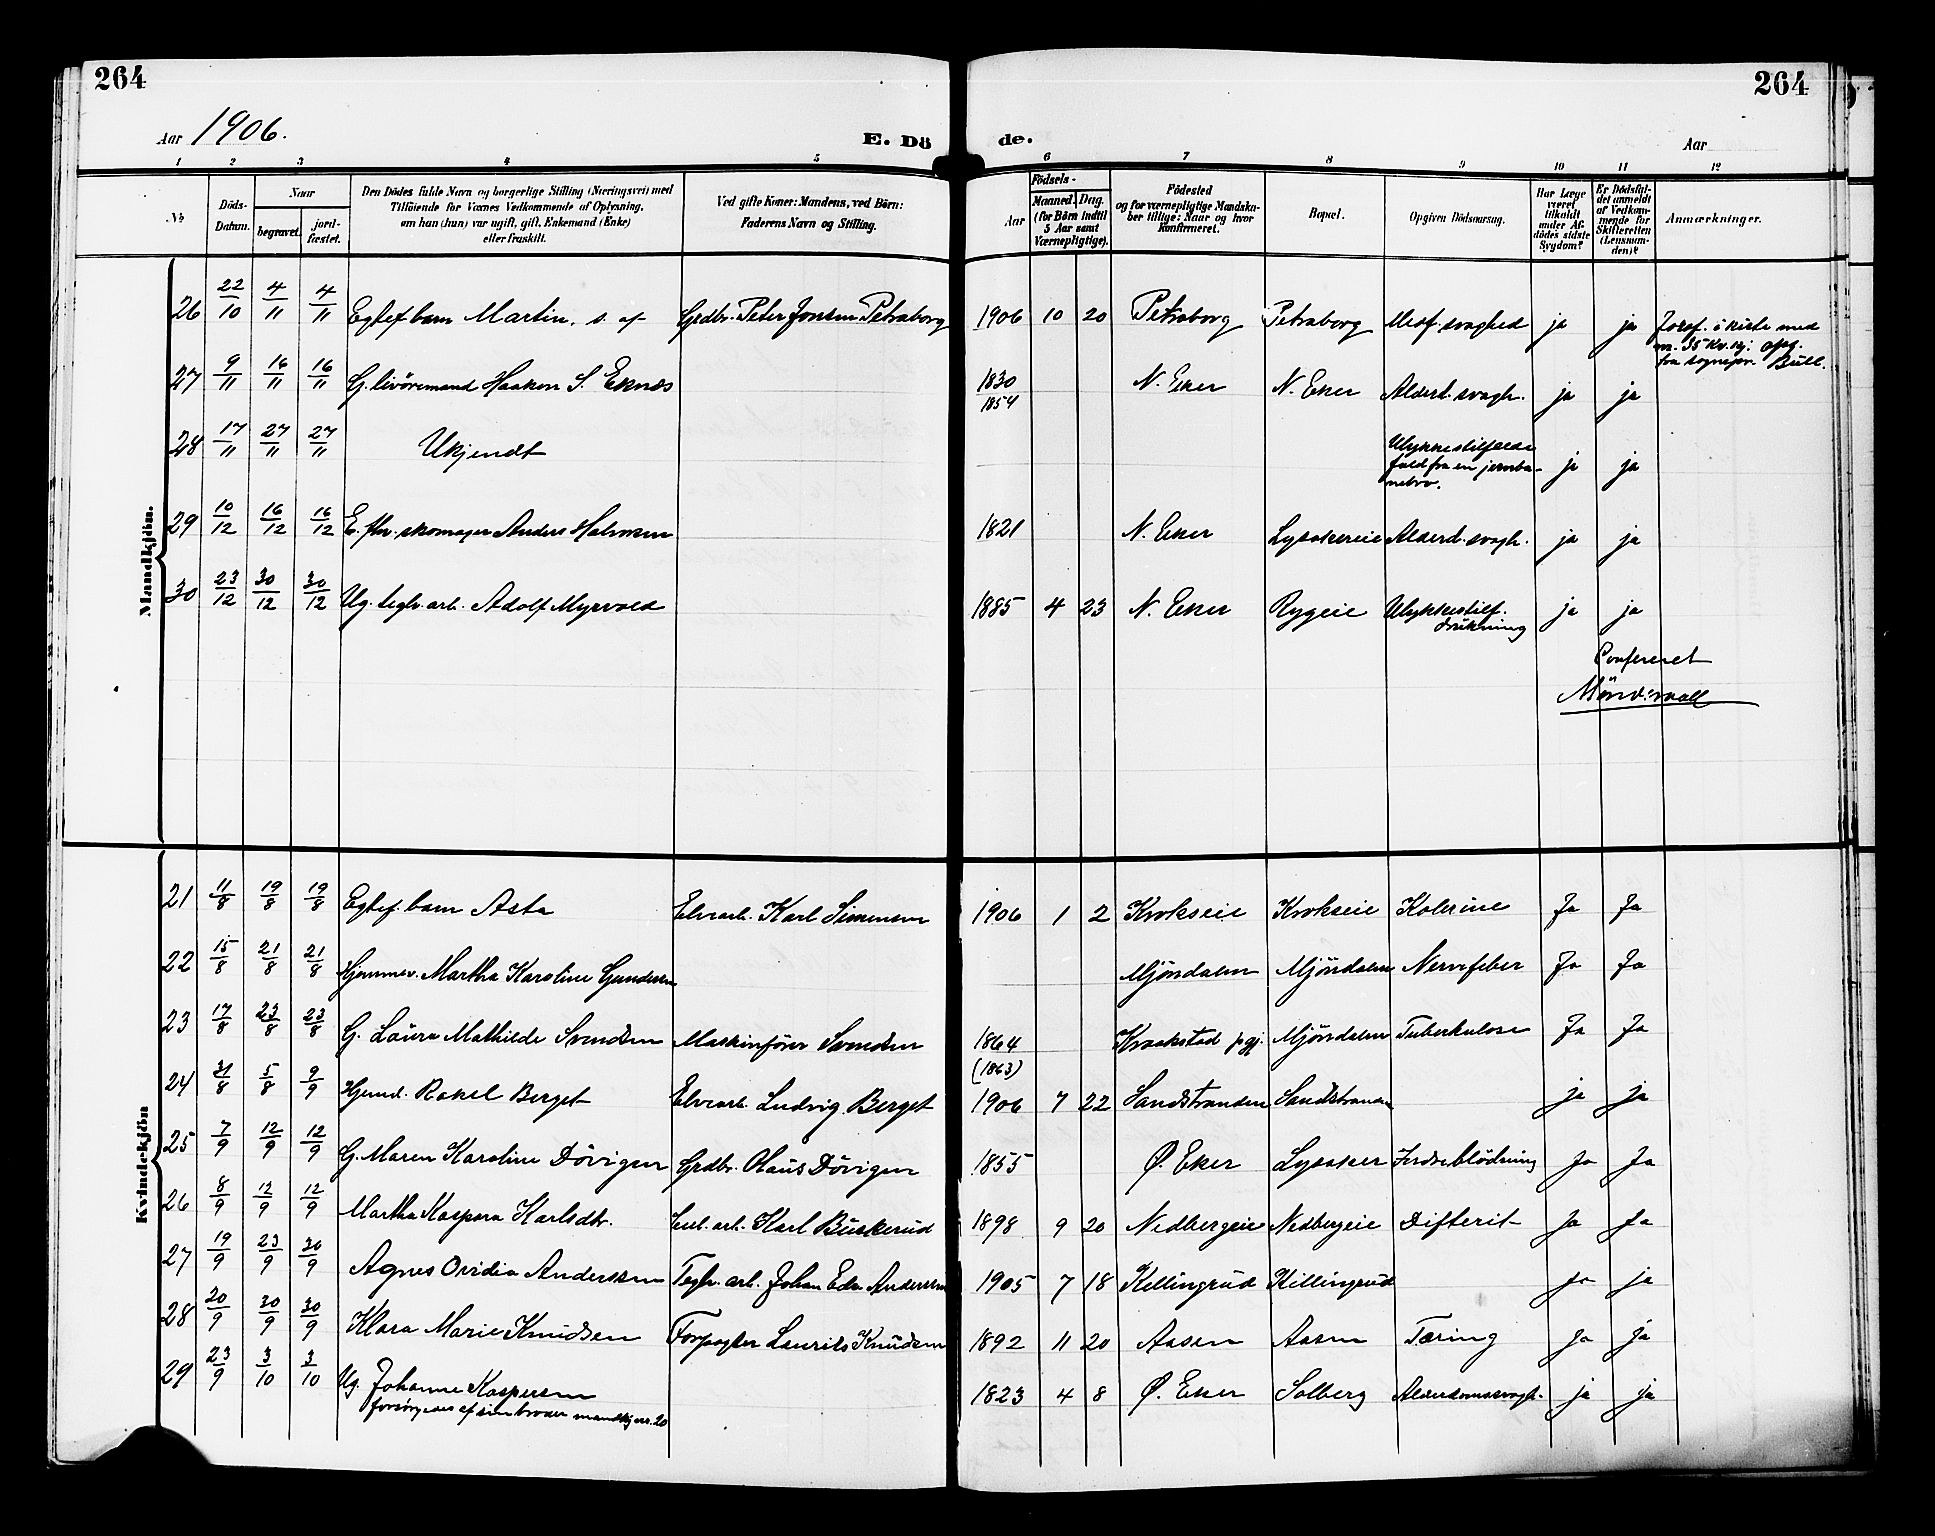 264
264
Aar 1906.
E. Dö
de.
Aar
1 2 3 4 5 6 7 8 9 10 11 12
No
Döds-Datum.
Naar
begravet.
jordfæstet.
Den Dödes fulde Navn og borgerlige Stilling (Næringsvei) med
Tilföiende for Voxnes Vedkommende af Oplysning,
om han (hun) var ugift, gift, Enkemand (Enke)
eller fraskilt.
Ved gifte Koner: Mandens, ved Börn:
Faderens Navn og Stilling.
Födsels-
Aar
Maaned. Dag.
(for Börn indtil
5 Aar samt
Værnepligtige).
Födested
og for værnepligtige Mandska-
ber tillige: Naar og hvor
konfirmeret.
Bopæl.
Opgiven Dödsaarsag.
Har Læge
været
tilkaldt
under Af-
dödes sidste
Sygdom?
Er Dödsfal-
det anmeldt
af Vedkom-
mende for
Skifteretten
(Lensman-
den)?
Anmærkninger.
Mandkjön.
26 22/10 4/11 4/11 Egtef. barn Martin, s. af Grdbr. Peter Jonsen Petraborg 1906 10 20 Petraborg Petraborg Medf. svaghed ja ja Jordf. i kiste med
nr. 35 Kv.kj.
fra sognepr. Bull.
27 9/11 16/11 16/11 G. livöremand Haakon S. Eknæs 1830 N. Eker N. Eker Alderd. svagh. ja ja
1854
28 17/11 27/11 27/11 Ukjendt Ulykkestilfælde
fald fra en jernba-
nebro. ja ja
29 10/12 16/12 16/12 E. fhv. skomager Anders Halvorsen 1821 N. Eker Lysakereie Alderd. svagh. ja ja
30 23/12 30/12 30/12 Ug. teglv. arb. Adolf Myrvold 1885 4 23 N. Eker Rygeie Ulykkestilf.
drukning ja ja
Confereret
Kvindekjön
21 11/8 19/8 19/8 Egtef. barn Asta Elvearb. Karl Simensen 1906 1 2 Krokseie Krokseie Kolerine Ja Ja
22 15/8 21/8 21/8 Hjemmev. Martha Karoline Gundersen Mjöndalen Mjöndalen Nervefeber Ja Ja
23 17/8 23/8 23/8 G. Laura Mathilde Svendsen Maskinförer Svendsen 1864 Kraakstad pgj. Mjöndalen Tuberkulose Ja Ja
(1863)
24 31/8 5/8 9/9 Hjemd. Rakel Berget Elvearb. Ludvig Berget 1906 7 22 Sandstranden Sandstranden ja ja
25 7/9 12/9 12/9 G. Maren Karoline Dövigen Grdbr. Olaus Dövigen 1855 Ö. Eker Lysaker Indreblödning Ja Ja
26 8/9 12/9 12/9 Martha Kaspara Karlsdtr. Cel. arb. Karl Buskerud 1898 9 20 Nedbergeie Nedbergeie Difterit Ja Ja
27 19/9 23/9 30/9 Agnes Ovidia Anderssen Teglv. arb. Johan Edv. Anderssen 1905 7 18 Killingrud Killingrud ja ja
28 20/9 30/9 30/9 Klara Marie Knudsen Forpagter Laurits Knudsen 1892 11 20 Aasen Aasen Tæring ja ja
29 23/9 3/10 3/10 Ug. Johanne Kaspersen 1823 4 8 Ö. Eker Solberg Alderdomssvagh. ja ja
forsörgedes af sin broder mandkj. nr. 20